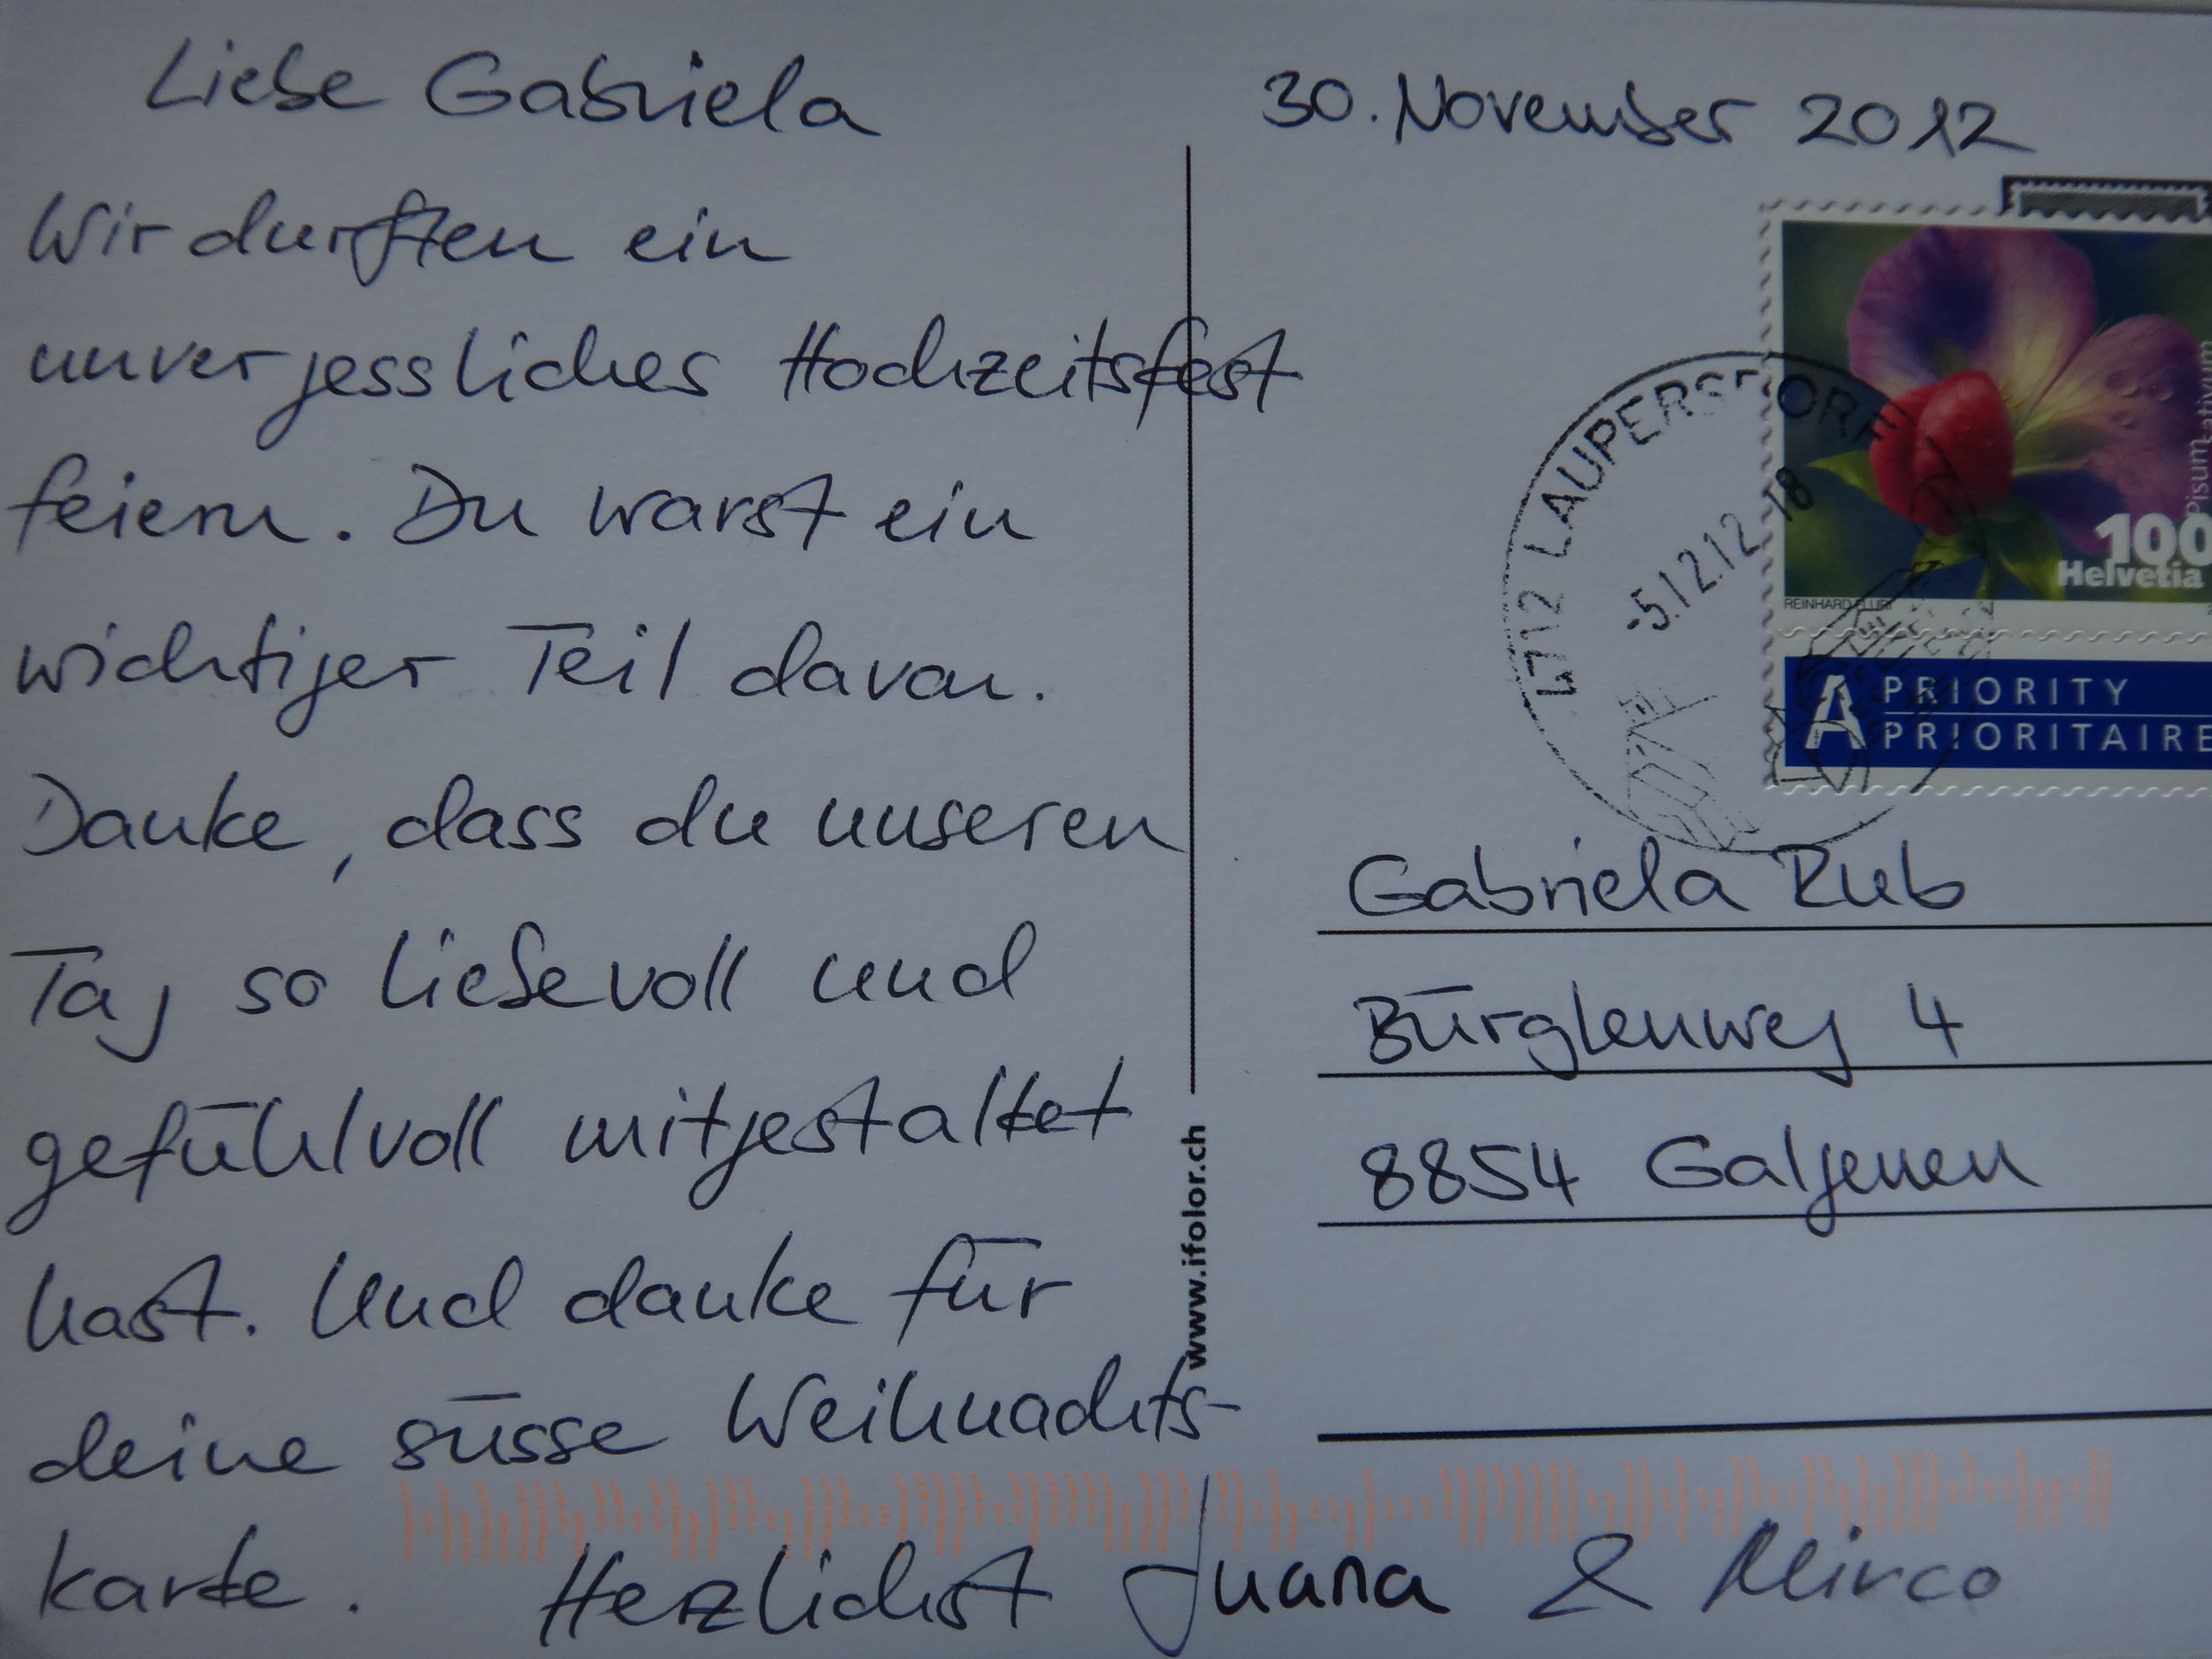 Liebe Gabriela
Wir durften ein
unvergessliches Hochzeitsfest
feiern. Du warst ein
wichtiger Teil davon.
Danke, dass du unseren
Tag so liebevoll und
gefühlvoll mitgestaltet
hast. Und danke für
deine süsse Weihnachts-
karte. Herzlichst Juana & Mirco
30. November 2012
4712 LAUPERSDORF
-5.12.12-18
Pisum sativum
100
Helvetia
REINHARD FLURI
A PRIORITY
PRIORITAIRE
Gabriela Rub
Bürglenweg 4
8854 Galgenen
www.ifolor.ch